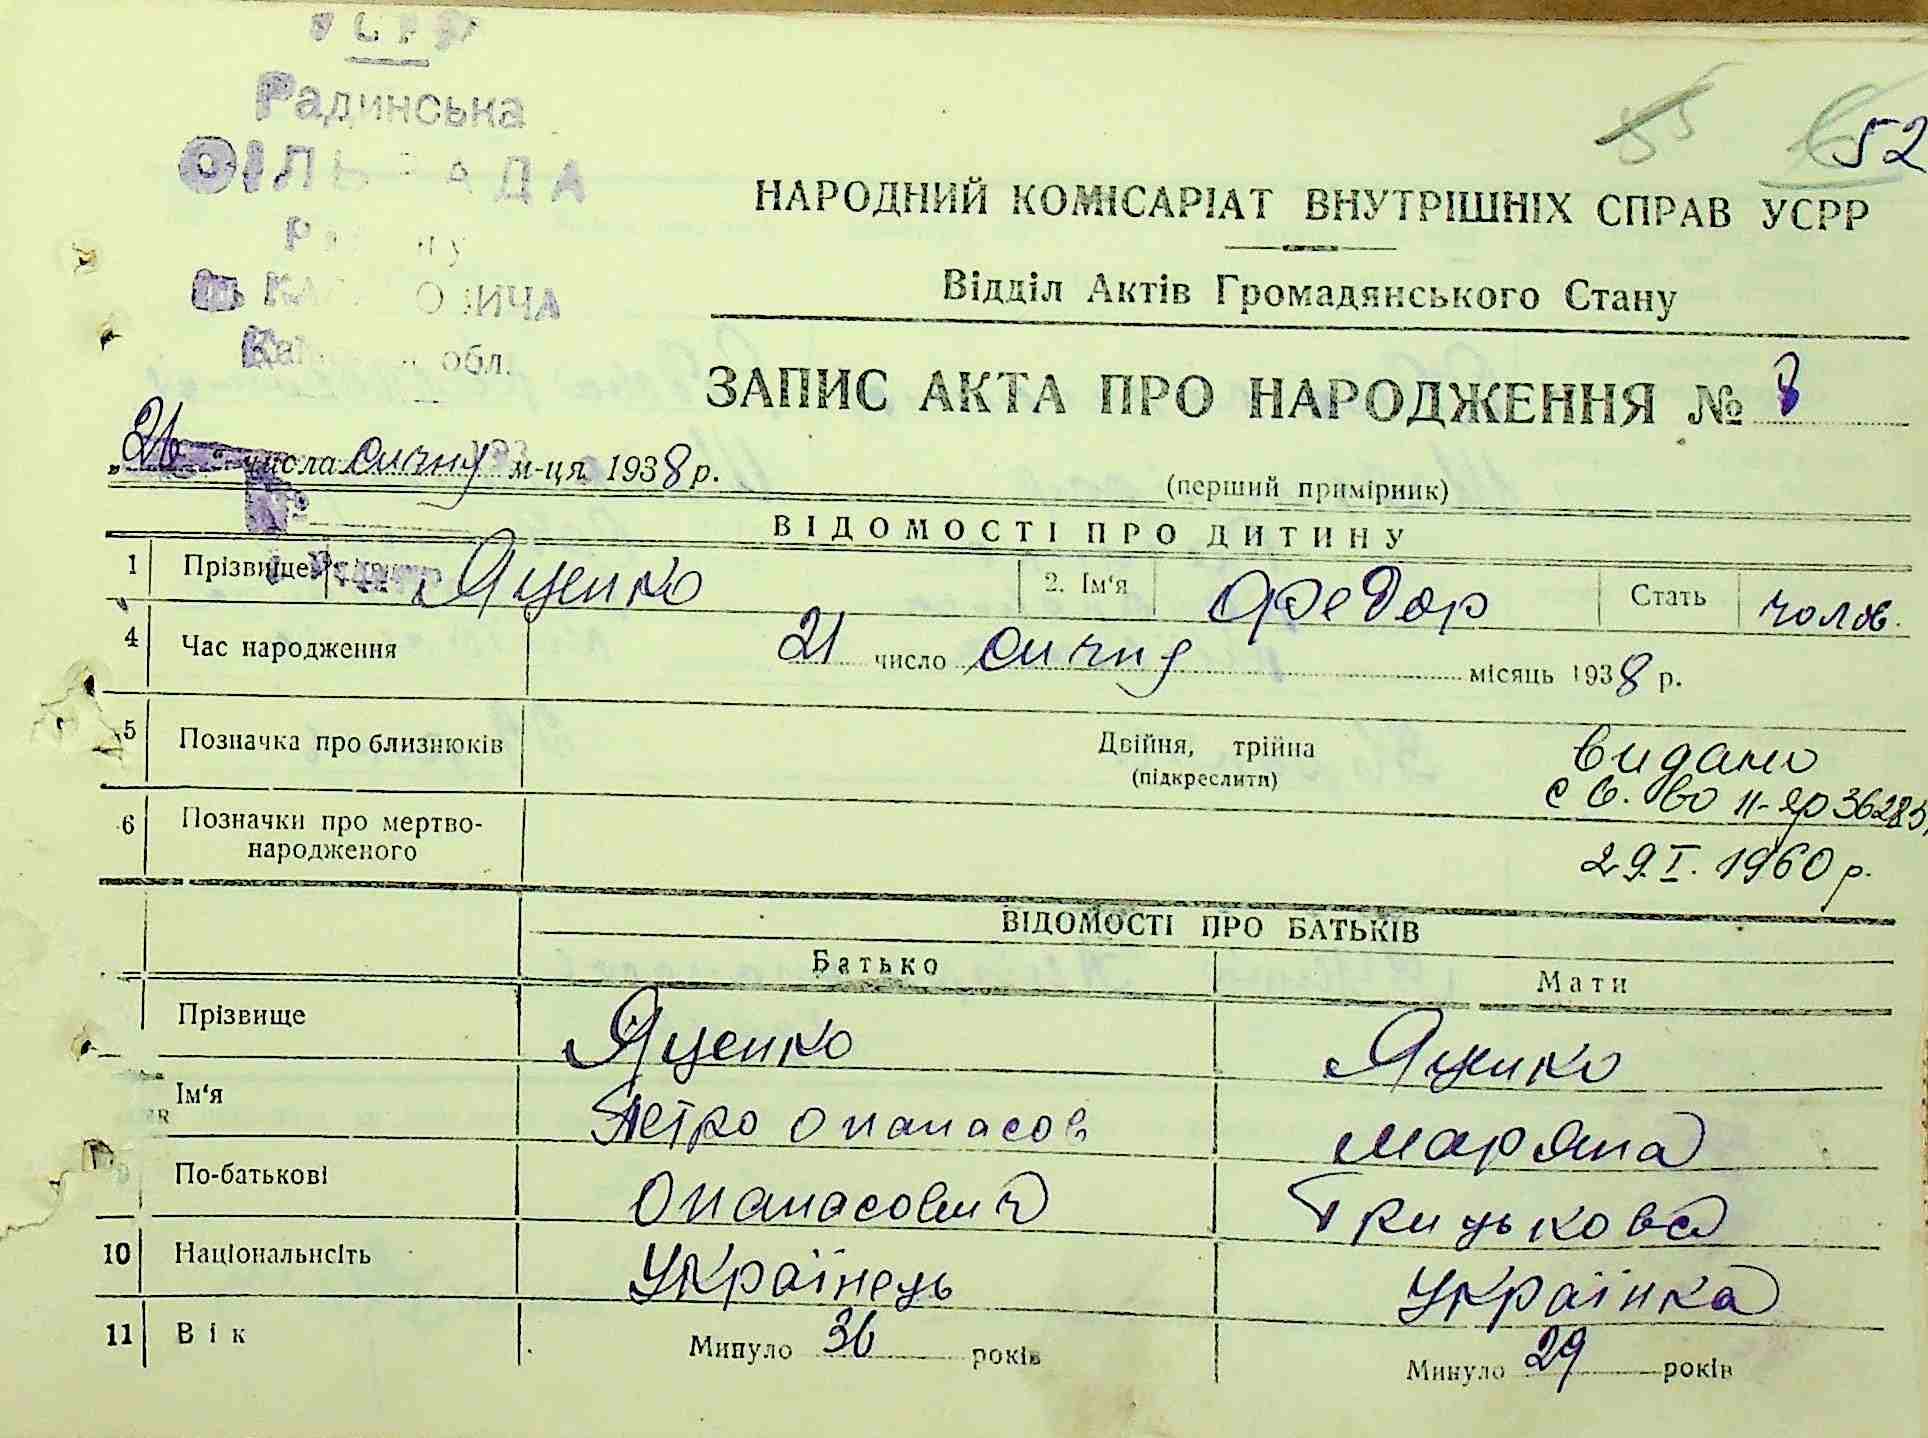 УСРР
Радинська
СІЛЬРАДА
обл.
55 52
НАРОДНИЙ КОМІСАРІАТ ВНУТРІШНІХ СПРАВ УСРР
Відділ Актів Громадянського Стану
ЗАПИС АКТА ПРО НАРОДЖЕННЯ № 8
„26“ числа січну м-ця 1938 р.
(перший примірник)
ВІДОМОСТІ ПРО ДИТИНУ
1 Прізвище Яценко 2. Ім'я Федор Стать чолов.
4 Час народження 21 число січну місяць 1938 р.
5 Позначка про близнюків Двійня, трійна видано
(підкреслити) св. во
6 Позначки про мертво-
народженого 29.I.1960 р.
ВІДОМОСТІ ПРО БАТЬКІВ
Батько Мати
Прізвище Яценко Яценко
Ім'я Петро опанасов Маряна
По-батькові Опанасович Грицькова
10 Національнсіть Українець Українка
11 Вік Минуло 36 років Минуло 29 років